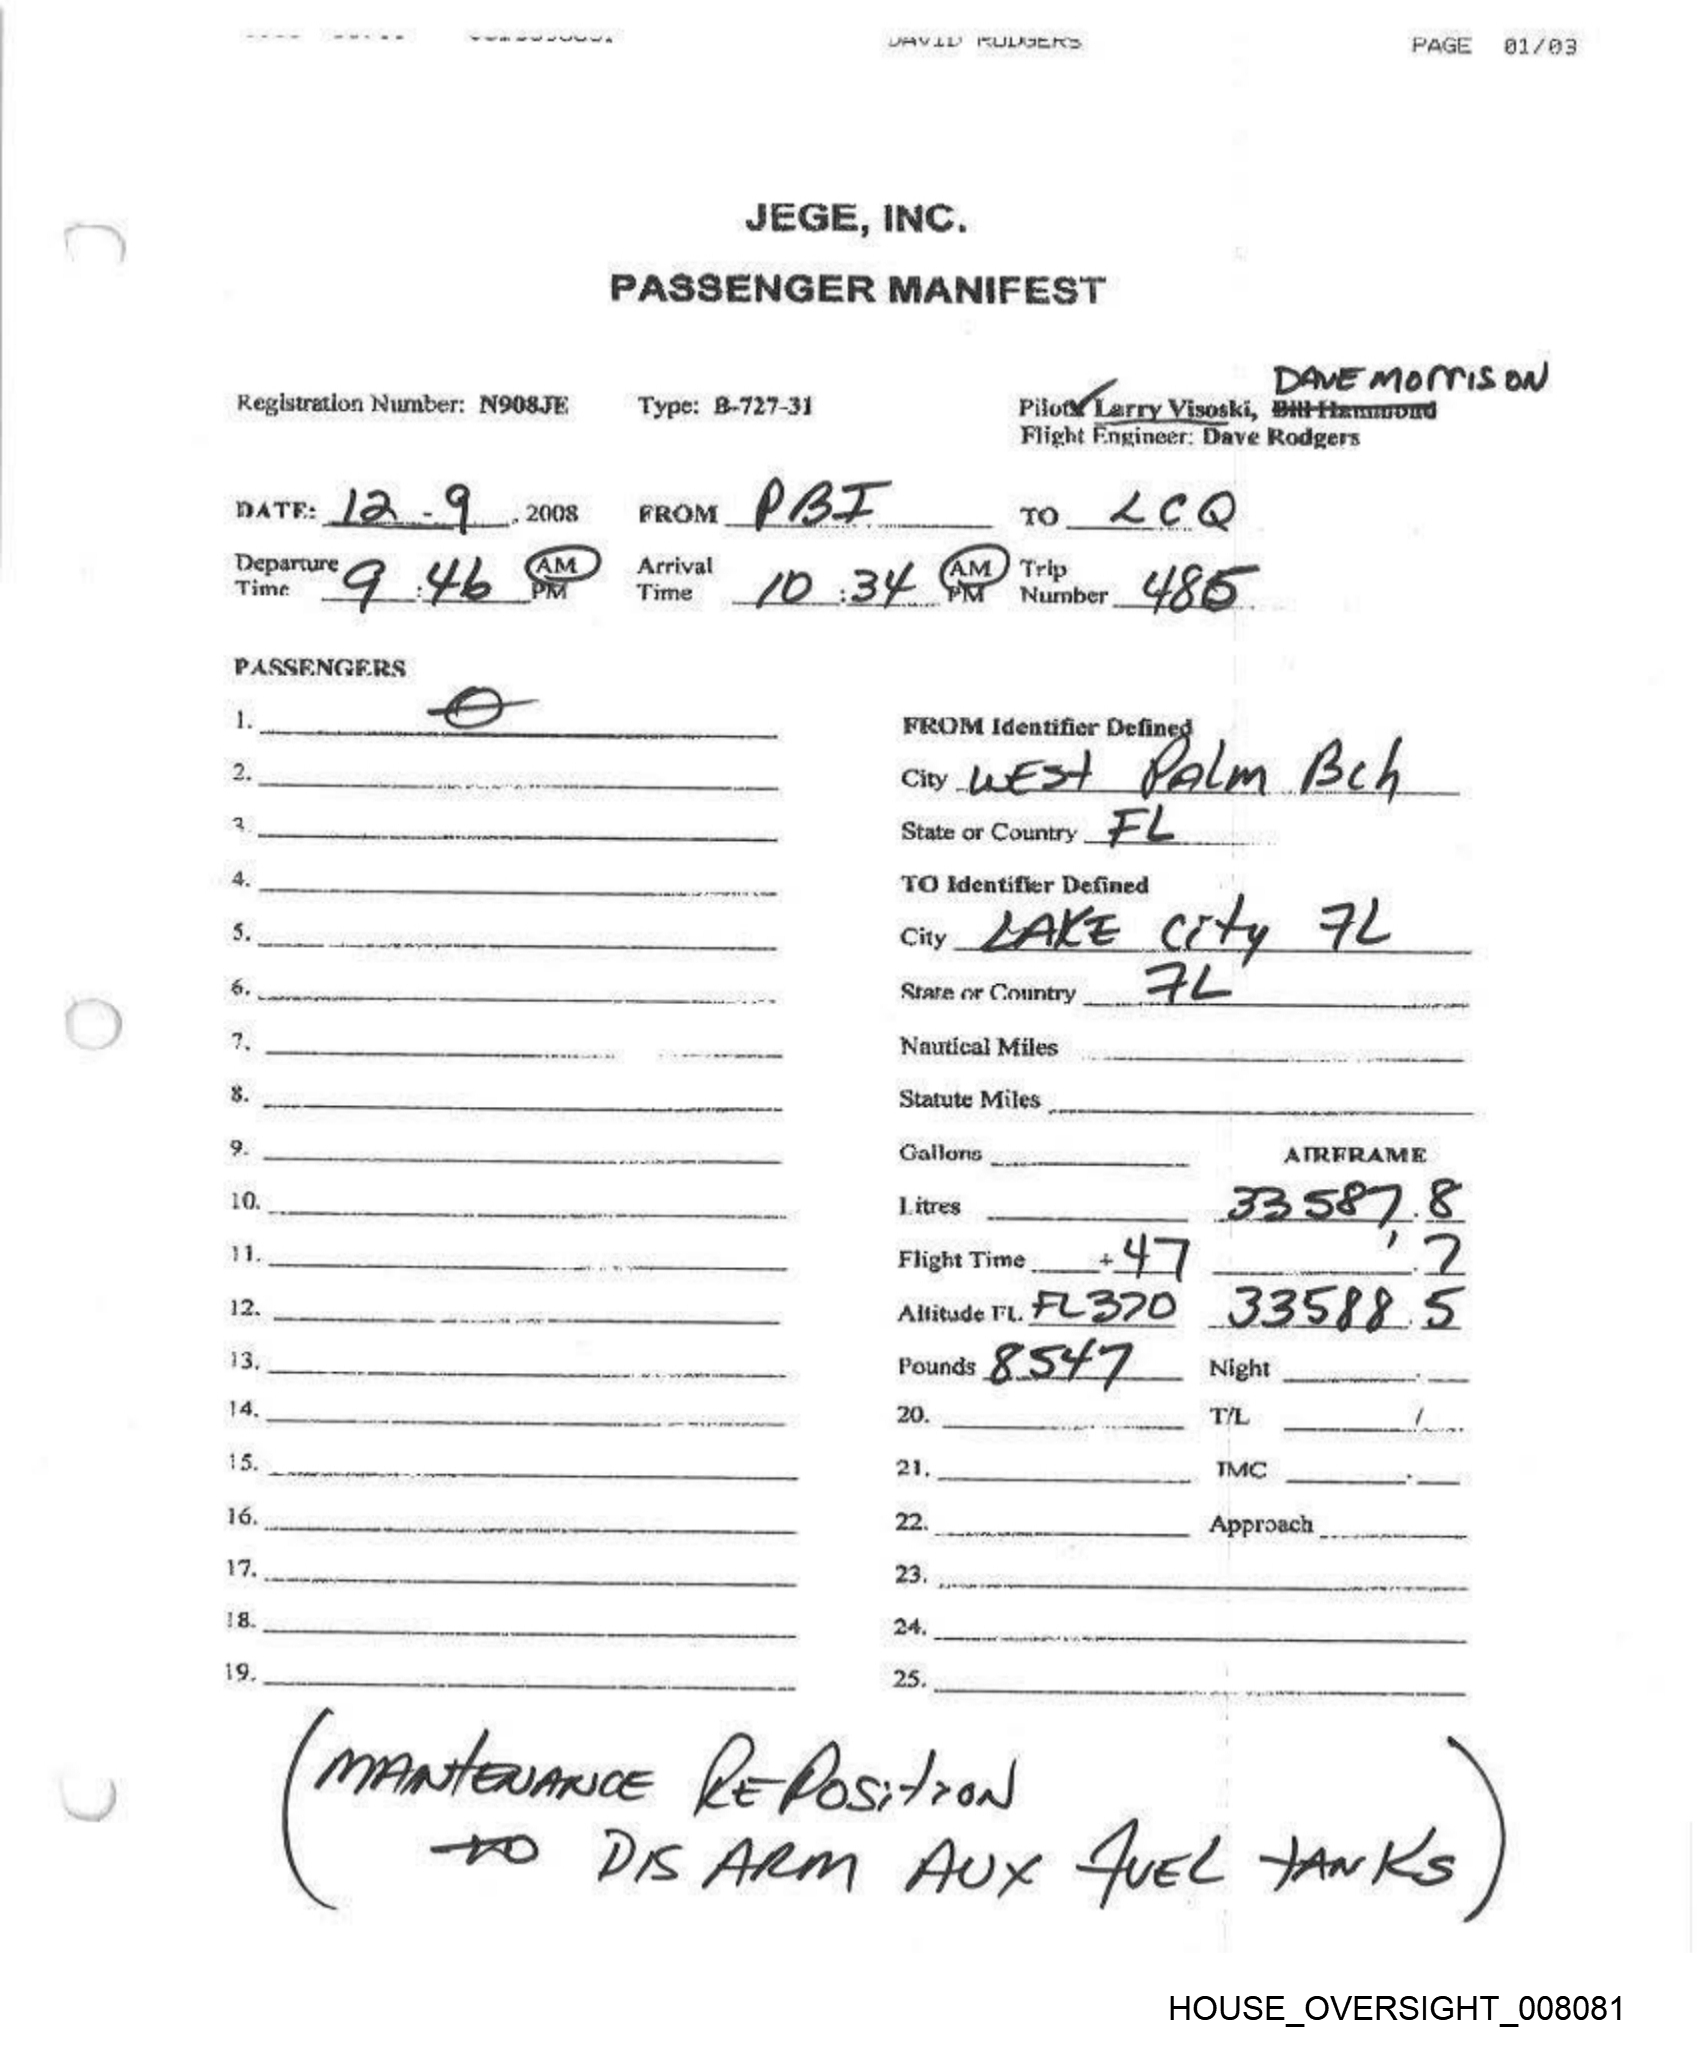 DAVID RODGERS PAGE 01/03
JEGE, INC.
PASSENGER MANIFEST
DAVE MORRISON
Registration Number: N908JE Type: B-727-31 Pilots Larry Visoski, Bill Hammond
Flight Engineer: Dave Rodgers
DATE: 12-9, 2008 FROM PBI TO LCQ
Departure Time 9:46 AM PM Arrival Time 10:34 AM PM Trip Number 485
PASSENGERS
1. 0
FROM Identifier Defined
2.
City WEST PALM Bch
3.
State or Country FL
4.
TO Identifier Defined
5.
City LAKE City FL
6.
State or Country FL
7.
Nautical Miles
8.
Statute Miles
9.
Gallons AIRFRAME
10.
Litres 33587.8
11.
Flight Time +47 .7
12.
Altitude FL. FL370 33588.5
13.
Pounds 8547 Night
14.
20. T/L /
15.
21. IMC .
16.
22. Approach
17.
23.
18.
24.
19.
25.
(MAINTENANCE REPOSITION
TO DISARM AUX FUEL TANKS)
HOUSE_OVERSIGHT_008081